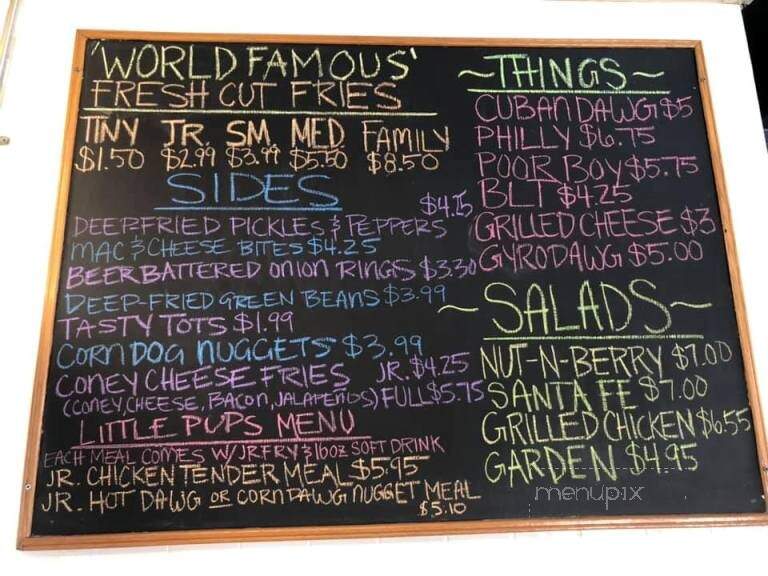 'WORLD FAMOUS'
FRESH CUT FRIES
TINY JR. SM MED FAMILY
$1.50 $2.99 $3.99 $5.50 $8.50
SIDES
DEEP-FRIED PICKLES & PEPPERS $4.25
MAC & CHEESE BITES $4.25
BEER BATTERED ONION RINGS $3.30
DEEP-FRIED GREEN BEANS $3.99
TASTY TOTS $1.99
CORN DOG NUGGETS $3.99
CONEY CHEESE FRIES JR. $4.25
(CONEY, CHEESE, BACON, JALAPEÑOS) FULL $5.75
LITTLE PUPS MENU
EACH MEAL COMES W/ JR FRY & 16oz SOFT DRINK
JR. CHICKEN TENDER MEAL $5.95
JR. HOT DAWG OR CORN DAWG NUGGET MEAL
$5.10
~THINGS~
CUBAN DAWG $5
PHILLY $6.75
POOR BOY $5.75
BLT $4.25
GRILLED CHEESE $3
GYRO DAWG $5.00
~SALADS~
NUT-N-BERRY $7.00
SANTA FE $7.00
GRILLED CHICKEN $6.55
GARDEN $4.95
menupix